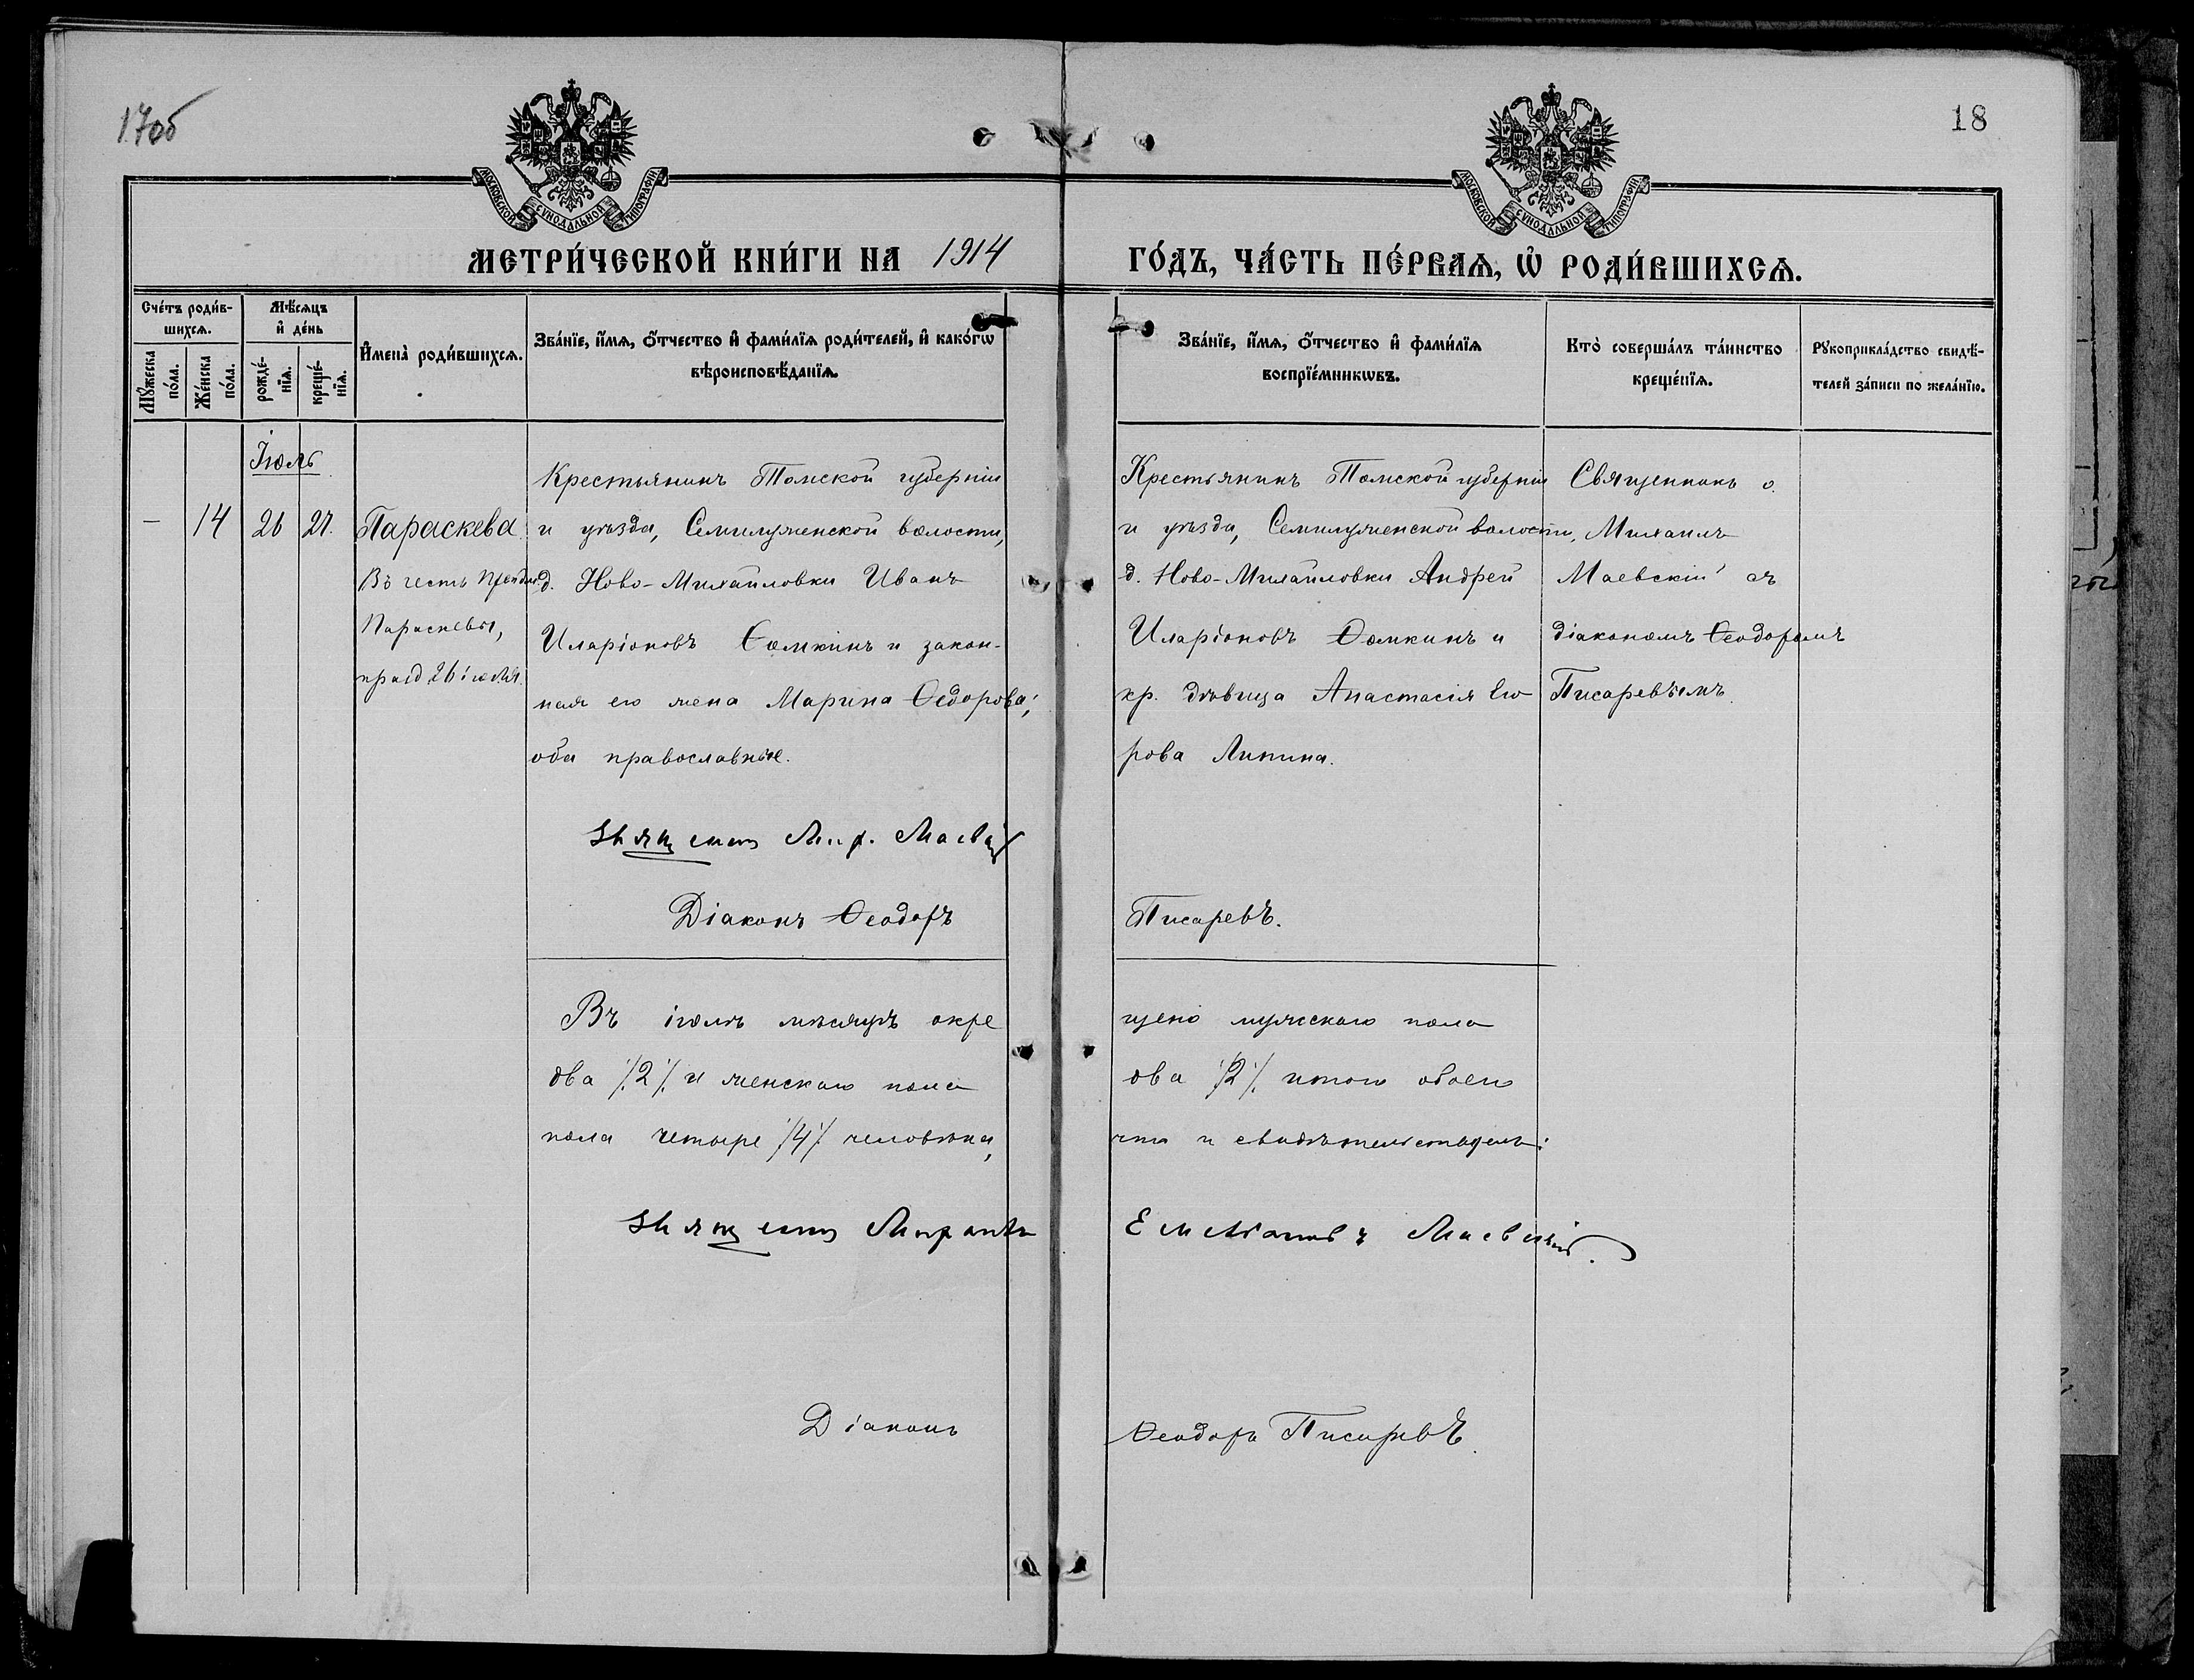 17об
18
МОСКОВСКОЙ СѴНОДАЛЬНОЙ ТИПОГРАФІИ
МОСКОВСКОЙ СѴНОДАЛЬНОЙ ТИПОГРАФІИ
МЕТРИ́ЧЕСКОЙ КНИ́ГИ НА 1914
ГО́ДЪ, ЧА́СТЬ ПЕ́РВАѦ, Ѡ҆ РОДИ́ВШИХСѦ.
Сче́тъ роди́в-
шихсѧ.
Мꙋ́жеска
по́ла.
Же́нска
по́ла.
Мѣ́сѧцъ
и҆ де́нь
рожде́-
нїѧ.
креще́-
нїѧ.
И҆мена̀ роди́вшихсѧ.
Зва́нїе, и҆́мѧ, ѻ҆́тчество и҆ фами́лїѧ роди́телей, и҆ како́гѡ
вѣроисповѣ́данїѧ.
Зва́нїе, и҆́мѧ, ѻ҆́тчество и҆ фами́лїѧ
воспрїе́мникѡвъ.
Кто̀ соверша́лъ та́инство
креще́нїѧ.
Рꙋкоприкла́дство свидѣ́-
телей за́писи по жела́нїю.
Іюль
— 14 26 27.
Параскева
Въ честь препдм.
Параскевы,
празд. 26 іюля.
Крестьянинъ Томской губерніи
и уѣзда, Семилуженской волости,
д. Ново-Михайловки Иванъ
Иларіоновъ Ѳомкинъ и закон-
ная его жена Марина Ѳедорова;
оба православные.
Крестьянинъ Томской губерніи
и уѣзда, Семилуженской волости,
д. Ново-Михайловки Андрей
Иларіоновъ Ѳомкинъ и
кр. дѣвица Анастасія Его
рова Липина.
Священникъ о.
Михаилъ
Маевскій съ
діакономъ Ѳеодоромъ
Писаревымъ.
Священникъ Мих. Маевскій
Діаконъ Ѳеодоръ Писаревъ.
Въ іюлѣ мѣсяцѣ окре щено мужескаго пола
два /2/ и женскаго пола два /2/ итого обоего
пола четыре /4/ человѣка, что и свидѣтельствуемъ:
Священникъ Михаилъ Емеліановъ Маевскій.
Діаконъ Ѳеодоръ Писаревъ.